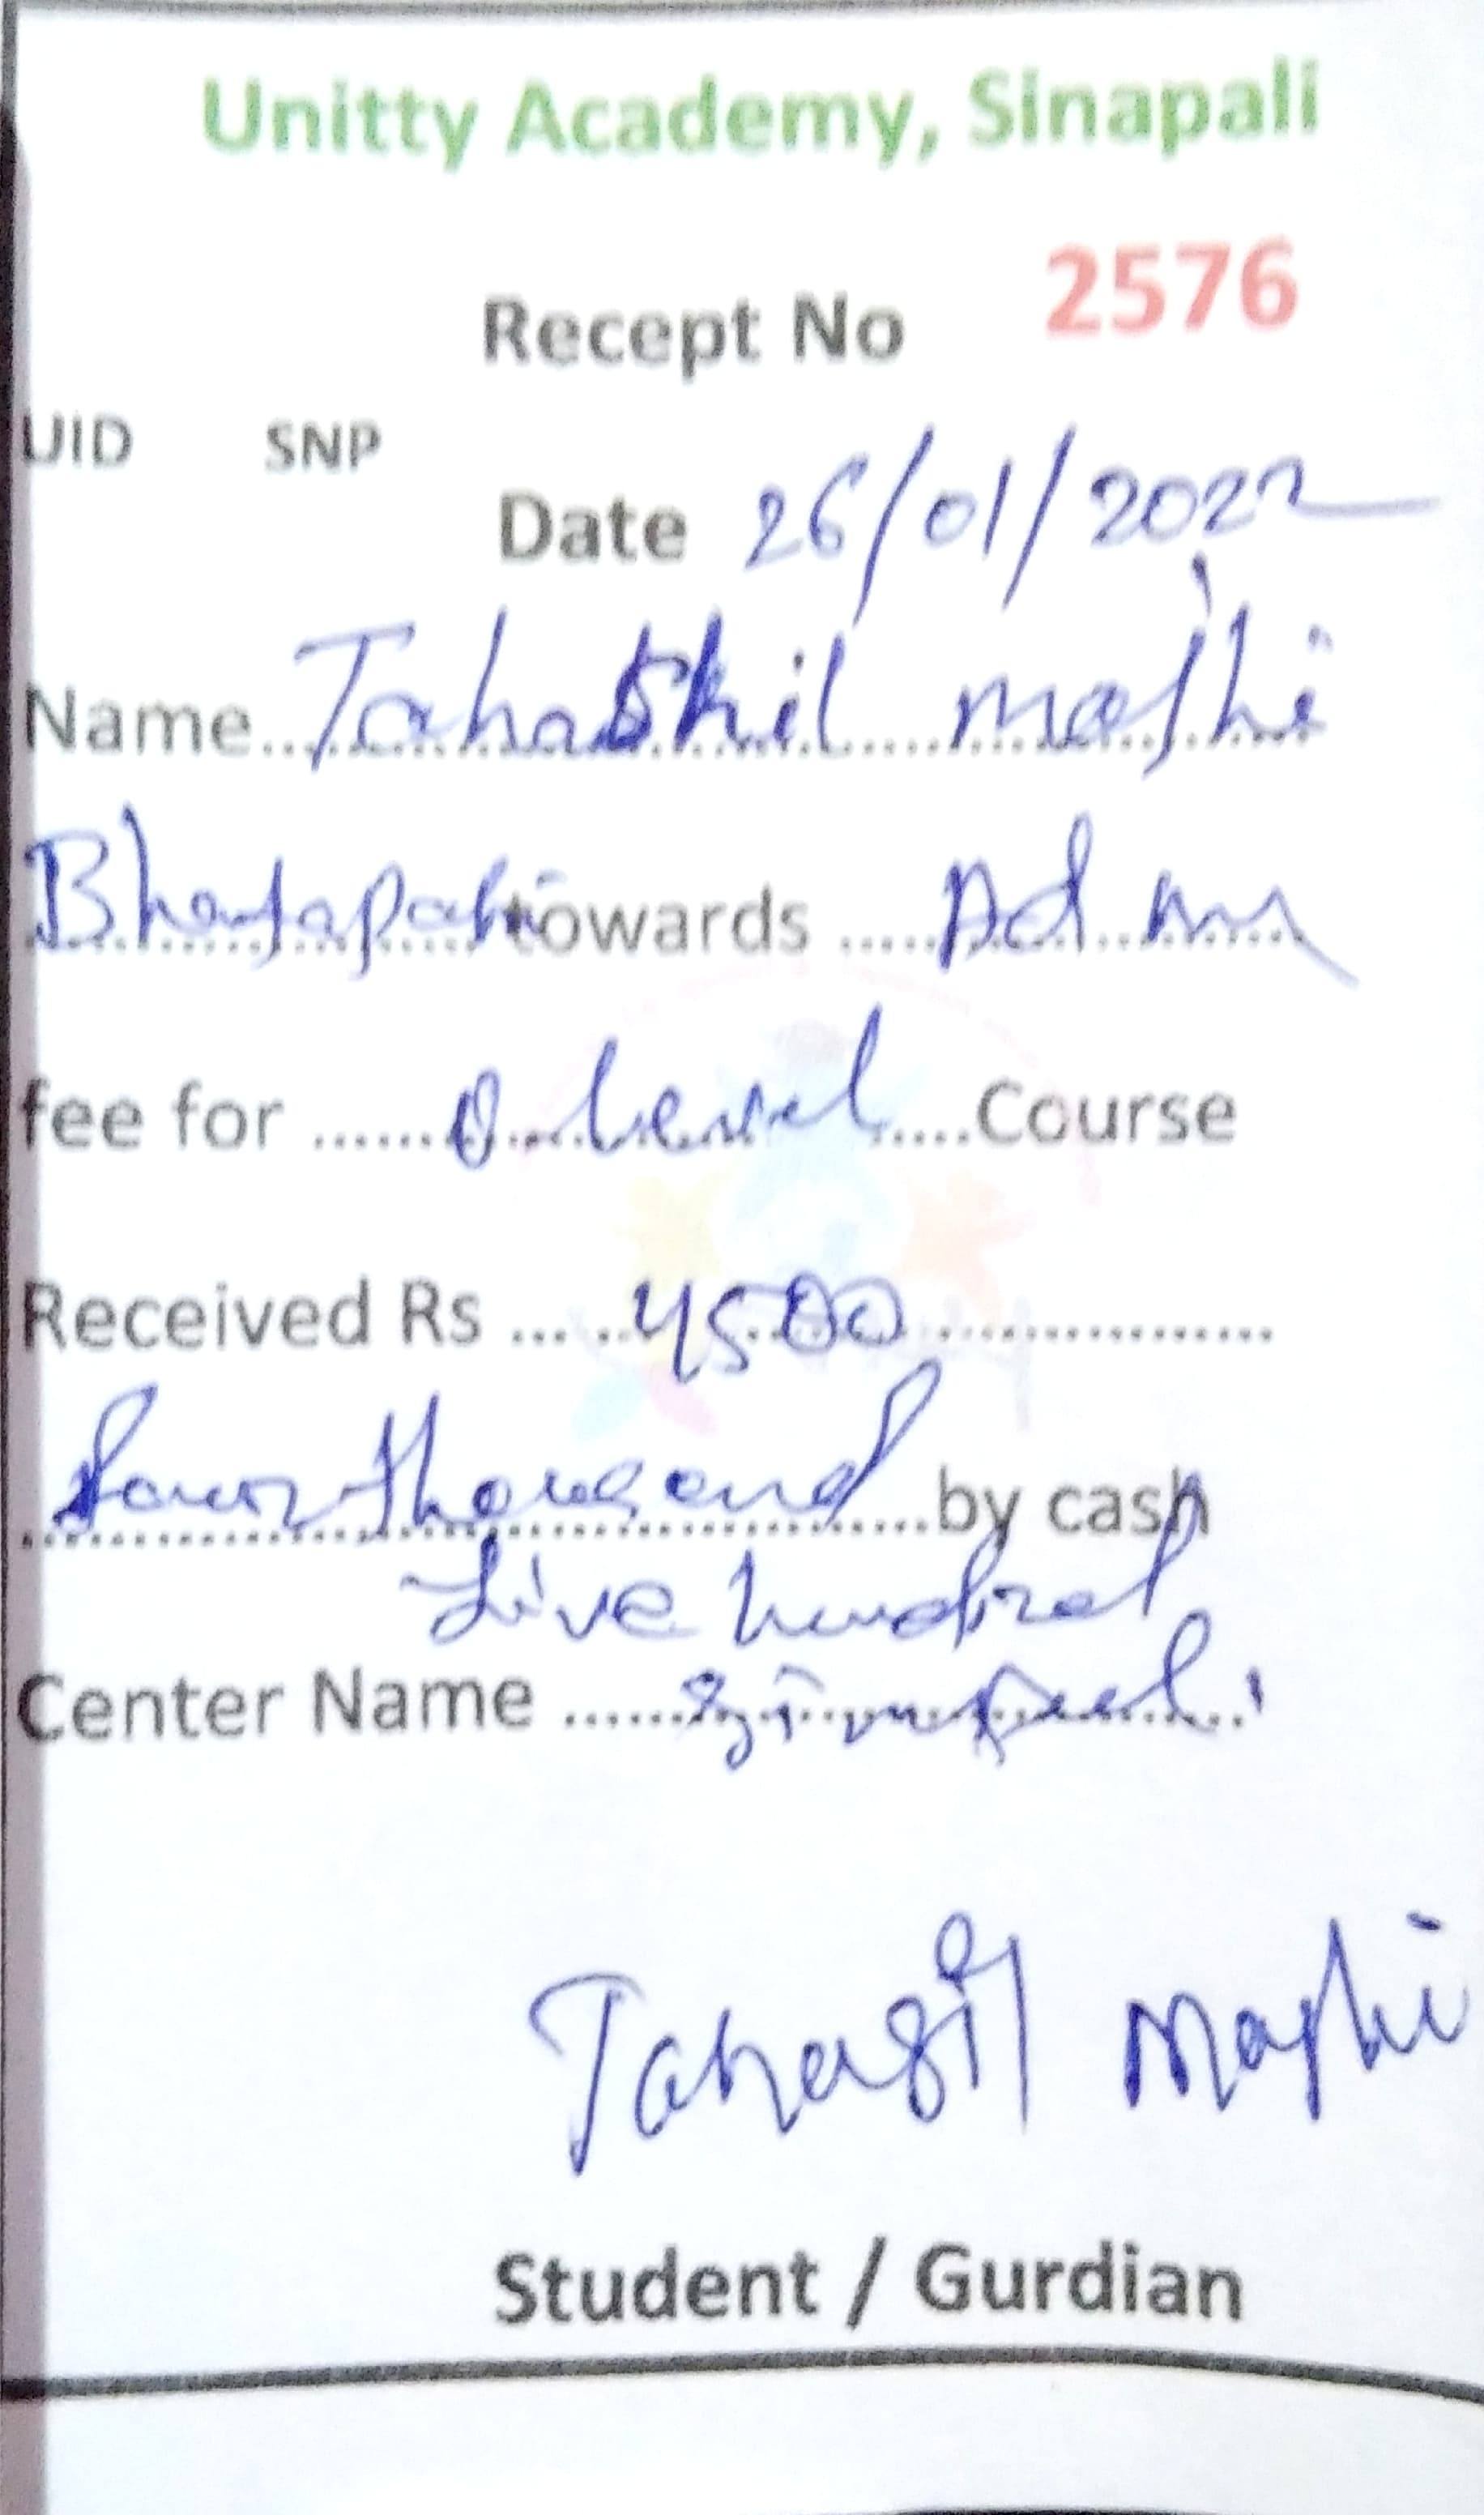 Unitty Academy, Sinapali
Recept No 2576
UID SNP
Date 26/01/2022
Name Tahashil majhi
towards Adm
fee for O level Course
Received Rs 4500
four thousand by cash
five hundred
Center Name
Tahasil Majhi
Student / Gurdian